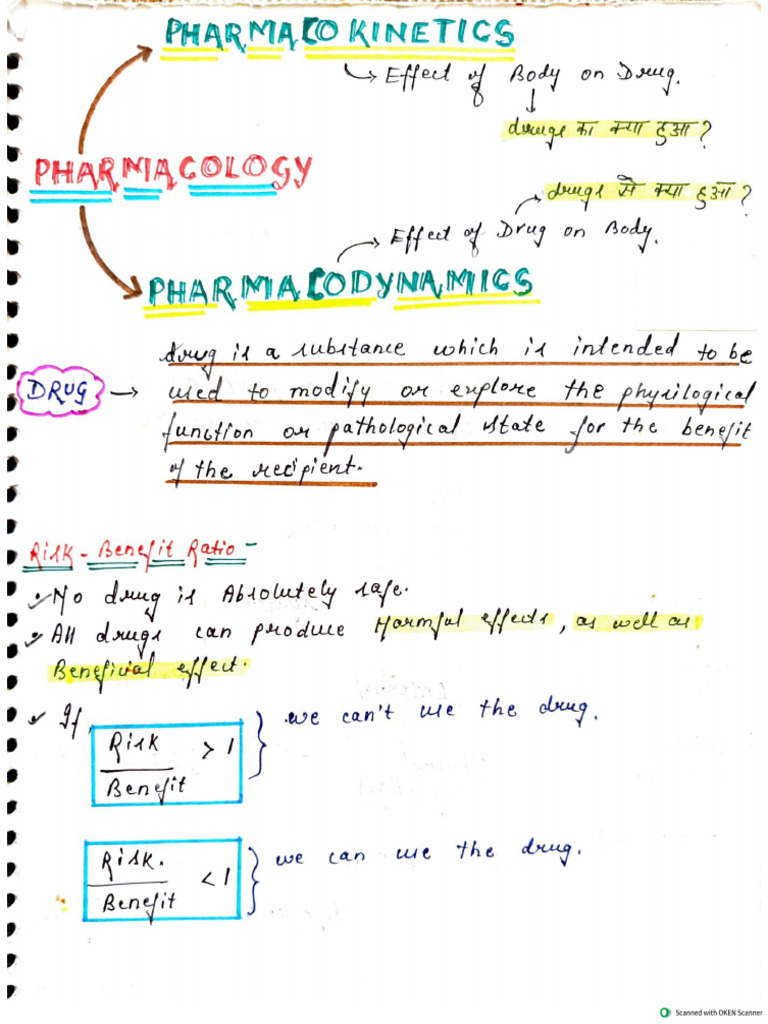 PHARMACOKINETICS
→ Effect of Body on Drug.
↓
drugs का क्या हुआ?
PHARMACOLOGY
drugs से क्या हुआ?
→ Effect of Drug on Body.
PHARMACODYNAMICS
DRUG → drug is a substance which is intended to be
used to modify or explore the physilogical
function or pathological state for the benefit
of the recipient.
Risk - Benefit Ratio -
No drug is Absolutely safe.
All drugs can produce Harmful effects, as well as
Beneficial effect.
If, Risk / Benefit > 1 } we can't use the drug.
Risk. / Benefit < 1 } we can use the drug.
Scanned with OKEN Scanner